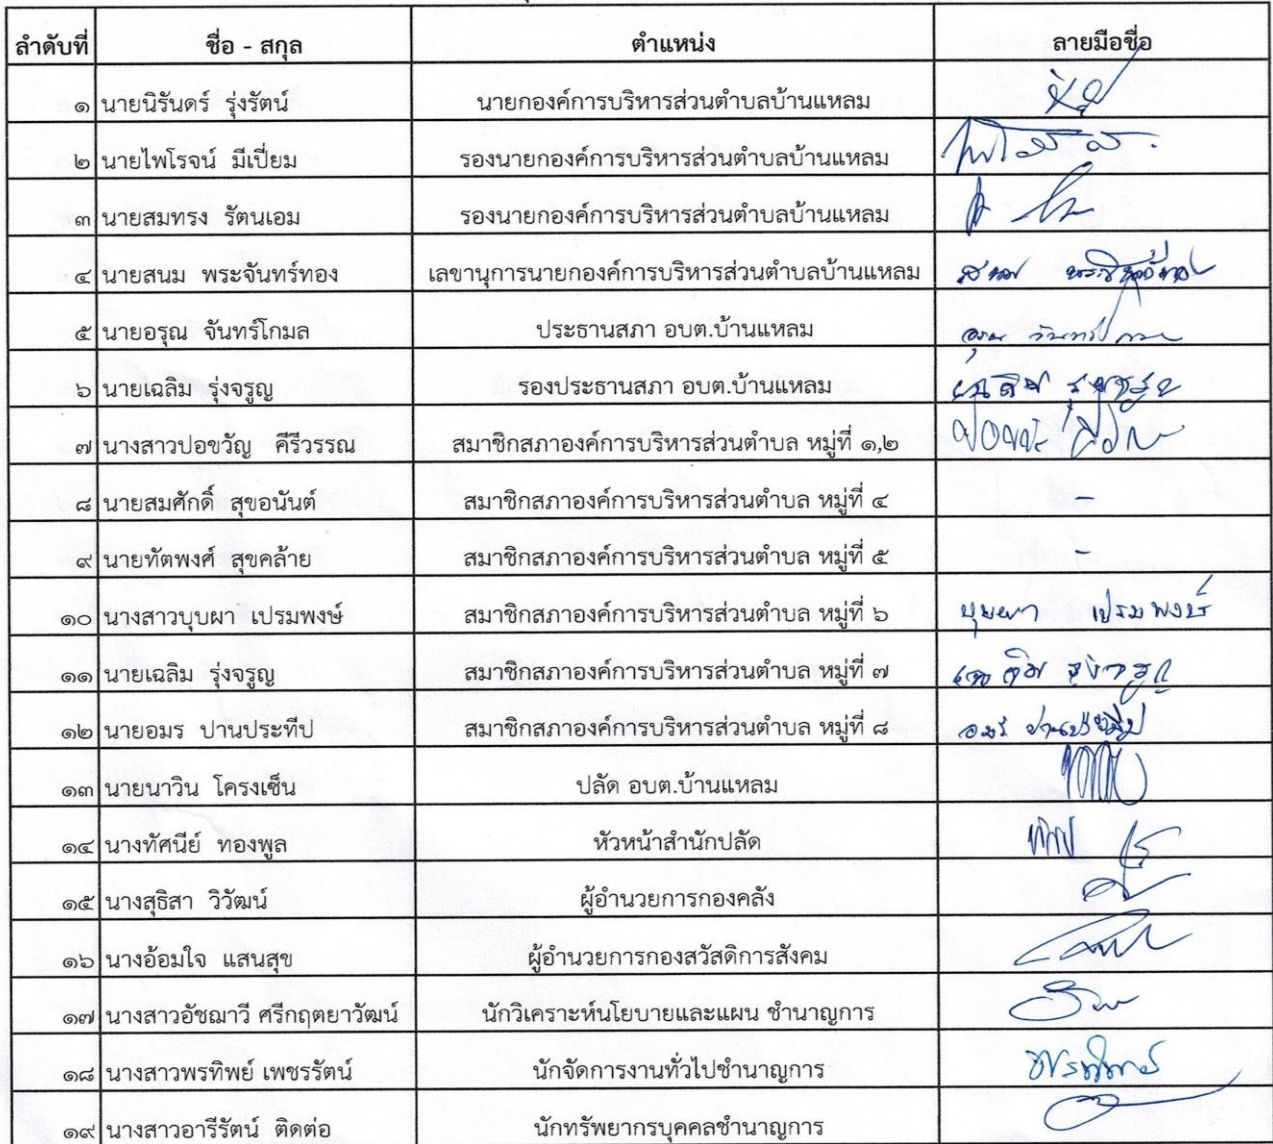 ลำดับที่ ชื่อ - สกุล ตำแหน่ง ลายมือชื่อ
๑ นายนิรันดร์ รุ่งรัตน์ นายกองค์การบริหารส่วนตำบลบ้านแหลม
๒ นายไพโรจน์ มีเปี่ยม รองนายกองค์การบริหารส่วนตำบลบ้านแหลม
๓ นายสมทรง รัตนเอม รองนายกองค์การบริหารส่วนตำบลบ้านแหลม
๔ นายสนม พระจันทร์ทอง เลขานุการนายกองค์การบริหารส่วนตำบลบ้านแหลม สนม พระจันทร์ทอง
๕ นายอรุณ จันทร์โกมล ประธานสภา อบต.บ้านแหลม อรุณ จันทร์โกมล
๖ นายเฉลิม รุ่งจรูญ รองประธานสภา อบต.บ้านแหลม เฉลิม รุ่งจรูญ
๗ นางสาวปอขวัญ คีรีวรรณ สมาชิกสภาองค์การบริหารส่วนตำบล หมู่ที่ ๑,๒
๘ นายสมศักดิ์ สุขอนันต์ สมาชิกสภาองค์การบริหารส่วนตำบล หมู่ที่ ๔ -
๙ นายทัตพงศ์ สุขคล้าย สมาชิกสภาองค์การบริหารส่วนตำบล หมู่ที่ ๕ -
๑๐ นางสาวบุบผา เปรมพงษ์ สมาชิกสภาองค์การบริหารส่วนตำบล หมู่ที่ ๖ บุบผา เปรมพงษ์
๑๑ นายเฉลิม รุ่งจรูญ สมาชิกสภาองค์การบริหารส่วนตำบล หมู่ที่ ๗ เฉลิม รุ่งจรูญ
๑๒ นายอมร ปานประทีป สมาชิกสภาองค์การบริหารส่วนตำบล หมู่ที่ ๘ อมร ปานประทีป
๑๓ นายนาวิน โครงเซ็น ปลัด อบต.บ้านแหลม
๑๔ นางทัศนีย์ ทองพูล หัวหน้าสำนักปลัด
๑๕ นางสุธิสา วิวัฒน์ ผู้อำนวยการกองคลัง
๑๖ นางอ้อมใจ แสนสุข ผู้อำนวยการกองสวัสดิการสังคม
๑๗ นางสาวอัชฌาวี ศรีกฤตยาวัฒน์ นักวิเคราะห์นโยบายและแผน ชำนาญการ
๑๘ นางสาวพรทิพย์ เพชรรัตน์ นักจัดการงานทั่วไปชำนาญการ พรทิพย์
๑๙ นางสาวอารีรัตน์ ติดต่อ นักทรัพยากรบุคคลชำนาญการ